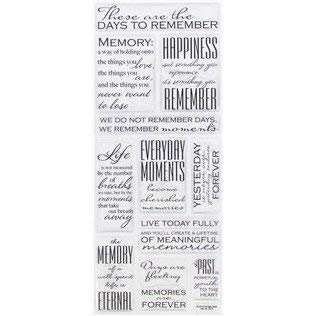 These are the
DAYS TO REMEMBER
MEMORY:
a way of holding onto
the things you love,
the things you are,
and the things you
never want
to lose
HAPPINESS
isn't something you
experience
it's something you
REMEMBER
WE DO NOT REMEMBER DAYS,
WE REMEMBER moments
Life
is not measured
by the number
of breaths
we take, but by the
moments
that take
our breath
away
EVERYDAY
MOMENTS
become
cherished
memories
YESTERDAY
FOREVER
LIVE TODAY FULLY
AND YOU'LL CREATE A LIFETIME
OF MEANINGFUL
memories
the
MEMORY
of a
well-spent
life is
ETERNAL
Days are
fleeting
MEMORIES
are
FOREVER
the PAST
is
PERPETUAL
youth
to the
HEART